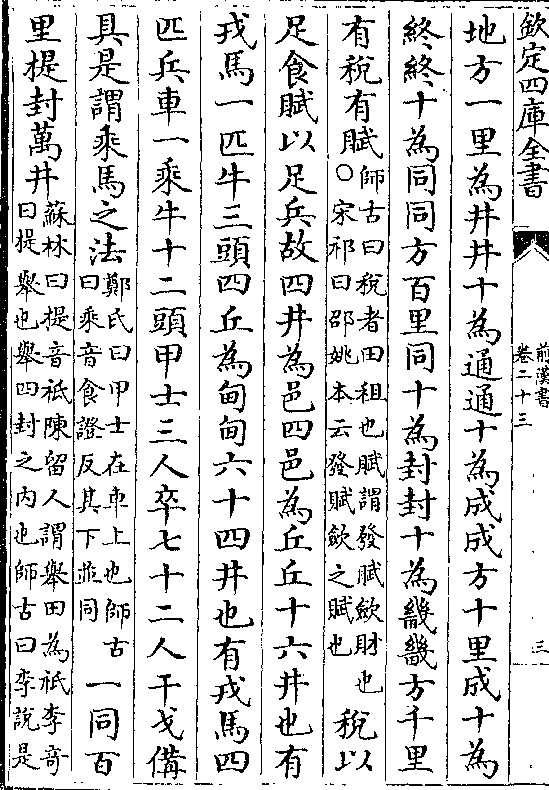 欽定四庫全書
前漢書
卷二十三
三
地方一里為井井十為通通十為成成方十里成十為
終終十為同同方百里同十為封封十為畿畿方千里
有稅有賦師古曰稅者田租也賦謂發賦斂財也○宋祁曰邵姚本云發賦斂之賦也稅以
足食賦以足兵故四井為邑四邑為丘丘十六井也有
戎馬一匹牛三頭四丘為甸甸六十四井也有戎馬四
匹兵車一乘牛十二頭甲士三人卒七十二人干戈備
具是謂乘馬之法鄭氏曰甲士在車上也師古曰乘音食證反其下並同一同百
里提封萬井蘇林曰提音祗陳留人謂舉田為祗李竒曰提舉也舉四封之内也師古曰李說是